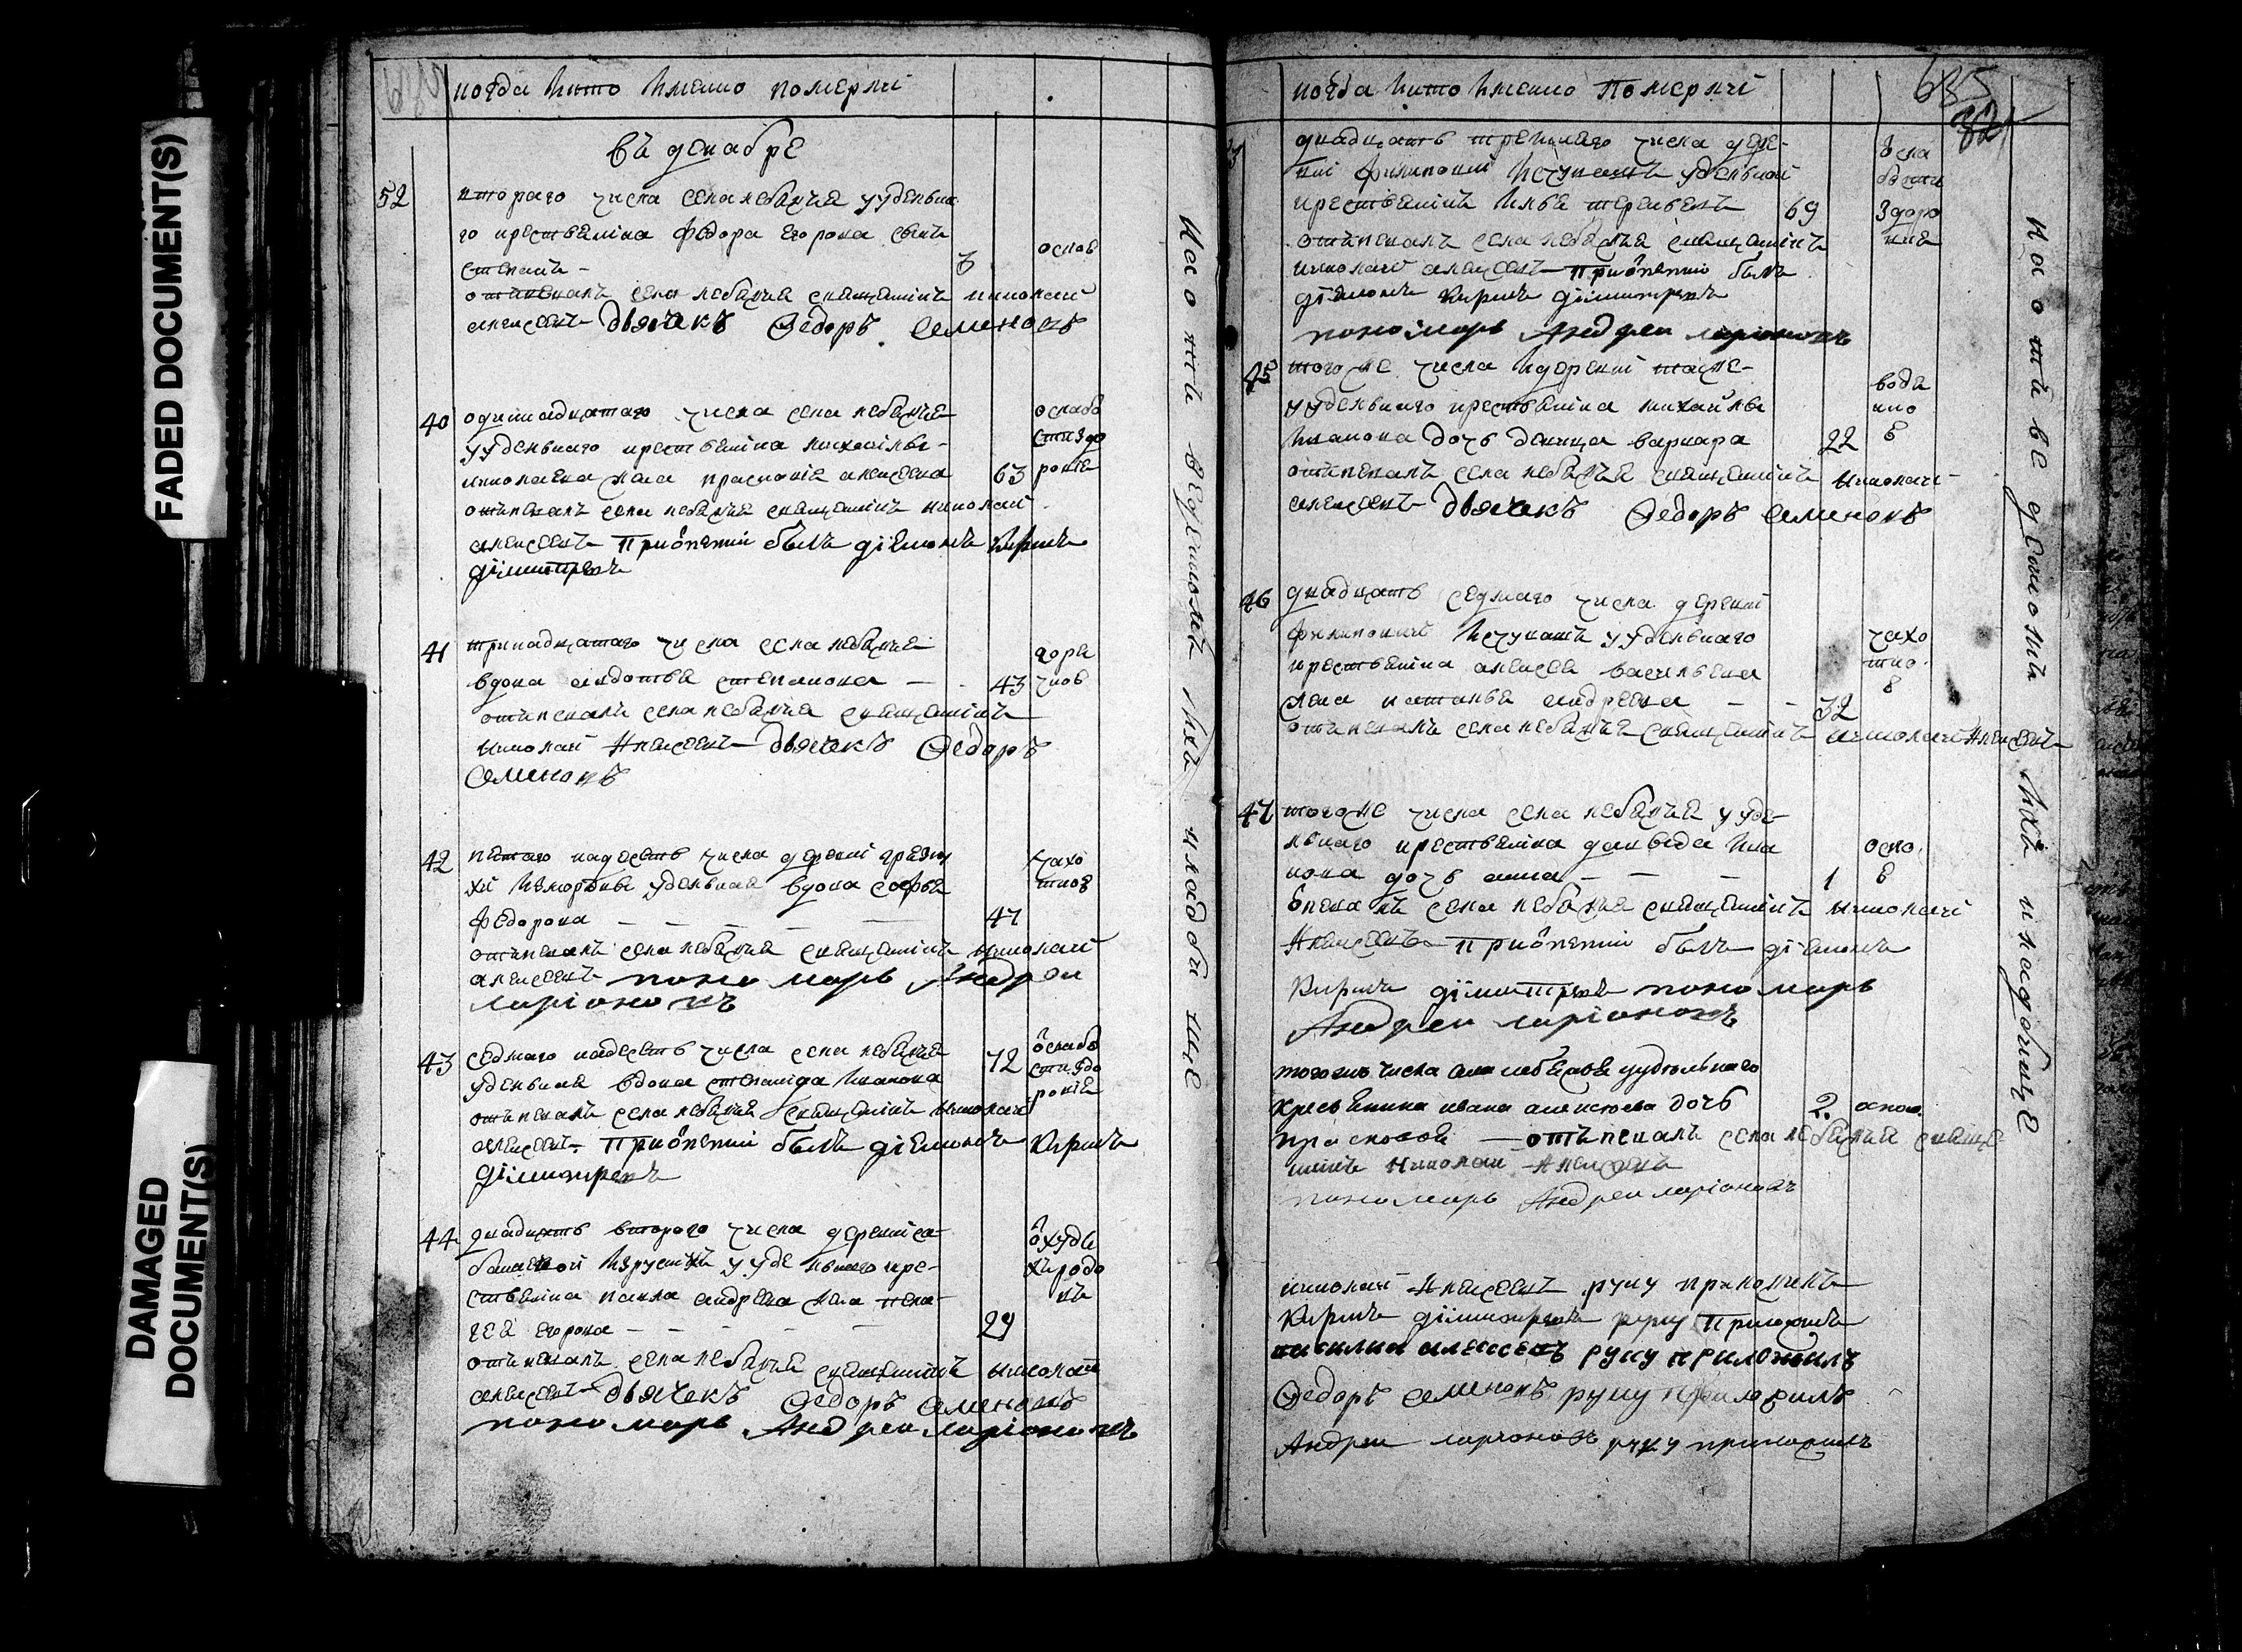 FADED DOCUMENT(S)
DAMAGED DOCUMENT(S)
когда ікто Імеnно померлі
въ декабре
52
втораго числа села лебяжья уудельна
го крестьяніна Федора егорова сынъ
стеfanъ –
3
оспоѣ
отпевалъ села лебяжья священнікъ николай
алексеевъ дьячекъ Ѳедоръ Семеновъ
40
одиннадцатаго числа села лебяжья
уудельнаго крестьяніна михаілы
николаева жена прасковіѣ алексеева
63
ослабо
сти здо
ровіѣ
отпевалъ села лебяжья священнікъ николай
алексеевъ при отпетиі былъ діяконъ Кирилъ
діімитріевъ
41
тринадцатаго числа села лебяжьей
вдова авдотья степанова –
43
горя
чкоѣ
отпевалъ села лебяжья священнікъ
николай Алексеевъ дьячекъ Ѳедоръ
Семеновъ
42
пятаго надесять числа деревні грязну
хи уудельная вдова софья
федорова
47
чахо
ткоѣ
отпевалъ села лебяжья священнікъ николай
алексеевъ пономарь Андреи
ларіоновъ
43
седмаго надесять числа села лебяжья
удельная вдова степаніда Іванова
72
ослабо
сти здо
ровіѣ
отпевалъ села лебяжья священнікъ николай
алексеевъ при отпетиі былъ діяконъ Кирилъ
діімитріевъ
44
двадцать втораго числа деревні са
уудельнаго кре-
стьяніна павла андреева жена пела-
геѣ егорова
29
родо
въ
отпевалъ села лебяжья священнікъ николай
алексеевъ дьячекъ Ѳедоръ Семеновъ
пономарь Андреи ларіоновъ
На отъ веденномъ Ихъ кладбищѣ
когда ікто Імеnно Померлі
685
двадцать третьяго числа дере-
вні удельной
крестьянінъ Илья терентьевъ
69
ослабости
здоро
вия
отпевалъ села лебяжья священнікъ
николай алексеевъ при отпетиі былъ
діяконъ Кирилъ діімитріевъ
пономарь Андреи ларіоновъ
45
тогоже числа Ідеревні тояже
уудельнаго крестьяніна михаілы
Іванова дочь девица варвара
22
водя
ною
отпевалъ села лебяжья священнікъ николай
алексеевъ дьячекъ Ѳедоръ Семеновъ
46
двадцать седмаго числа деревні
уудельнаго
крестьяніна алексея васильева
жена наталья андреева
32
чахо
ткоѣ
отпевалъ села лебяжья священнікъ николай Алексеевъ
47
тогоже числа села лебяжья ууде-
льнаго крестьяніна давыда Ива
нова дочь анна
1
оспо
ѣ
отпевалъ села лебяжья священнікъ николай
Алексеевъ при отпетиі былъ діяконъ
Кирилъ діімитріевъ пономарь
Андреи ларіоновъ
тогожъ числа села лебяжья уудельнаго
кресьянина ивана алексеева дочь
2
оспою
прасковья отпевалъ села лебяжья священ
нікъ Николай Алексеевъ
пономарь Андреи ларіоновъ
николай Алексеевъ руку приложилъ
Кирилъ діімитріевъ руку Приложилъ
василий алексеевъ руку приложилъ
Ѳедоръ Семеновъ руку приложилъ
Андреи ларионовъ руку приложилъ
На отъ веденномъ Ихъ кладбищѣ